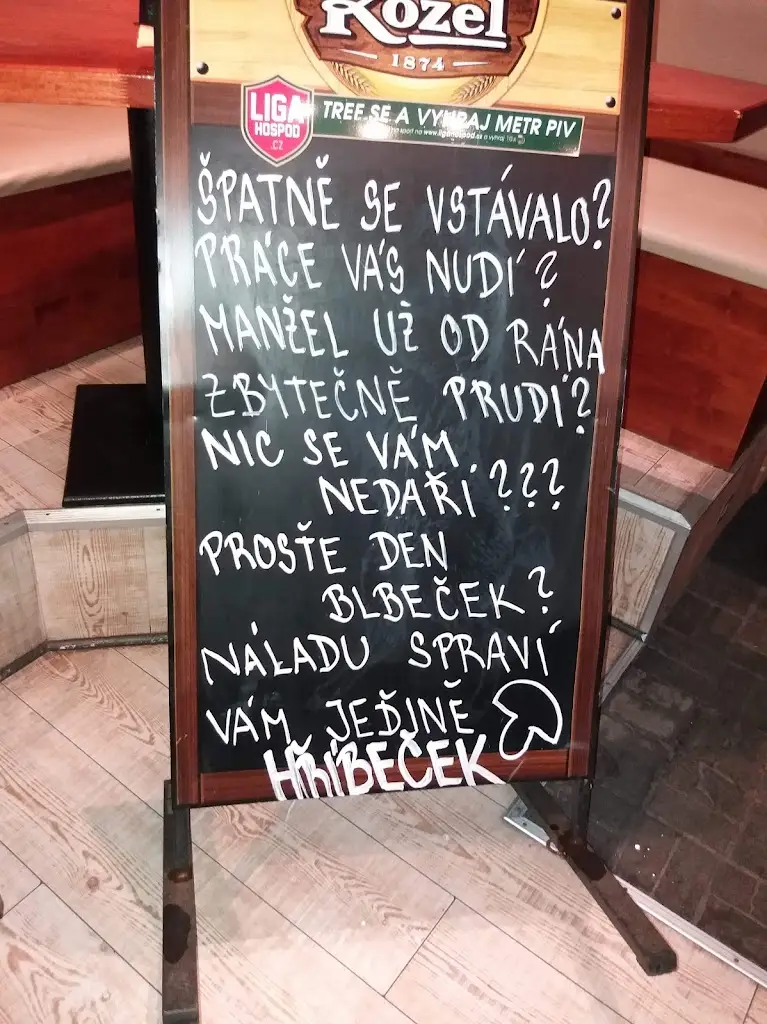 Kozel
1874
LIGA
HOSPOD
.CZ
TREF SE A VYHRAJ METR PIV
ŠPATNĚ SE VSTÁVALO?
PRÁCE VÁS NUDÍ?
MANŽEL UŽ OD RÁNA
ZBYTEČNĚ PRUDÍ?
NIC SE VÁM
NEDAŘÍ???
PROSŤE DEN
BLBEČEK?
NÁLADU SPRAVÍ
VÁM JEĎINĚ
HŘÍBEČEK